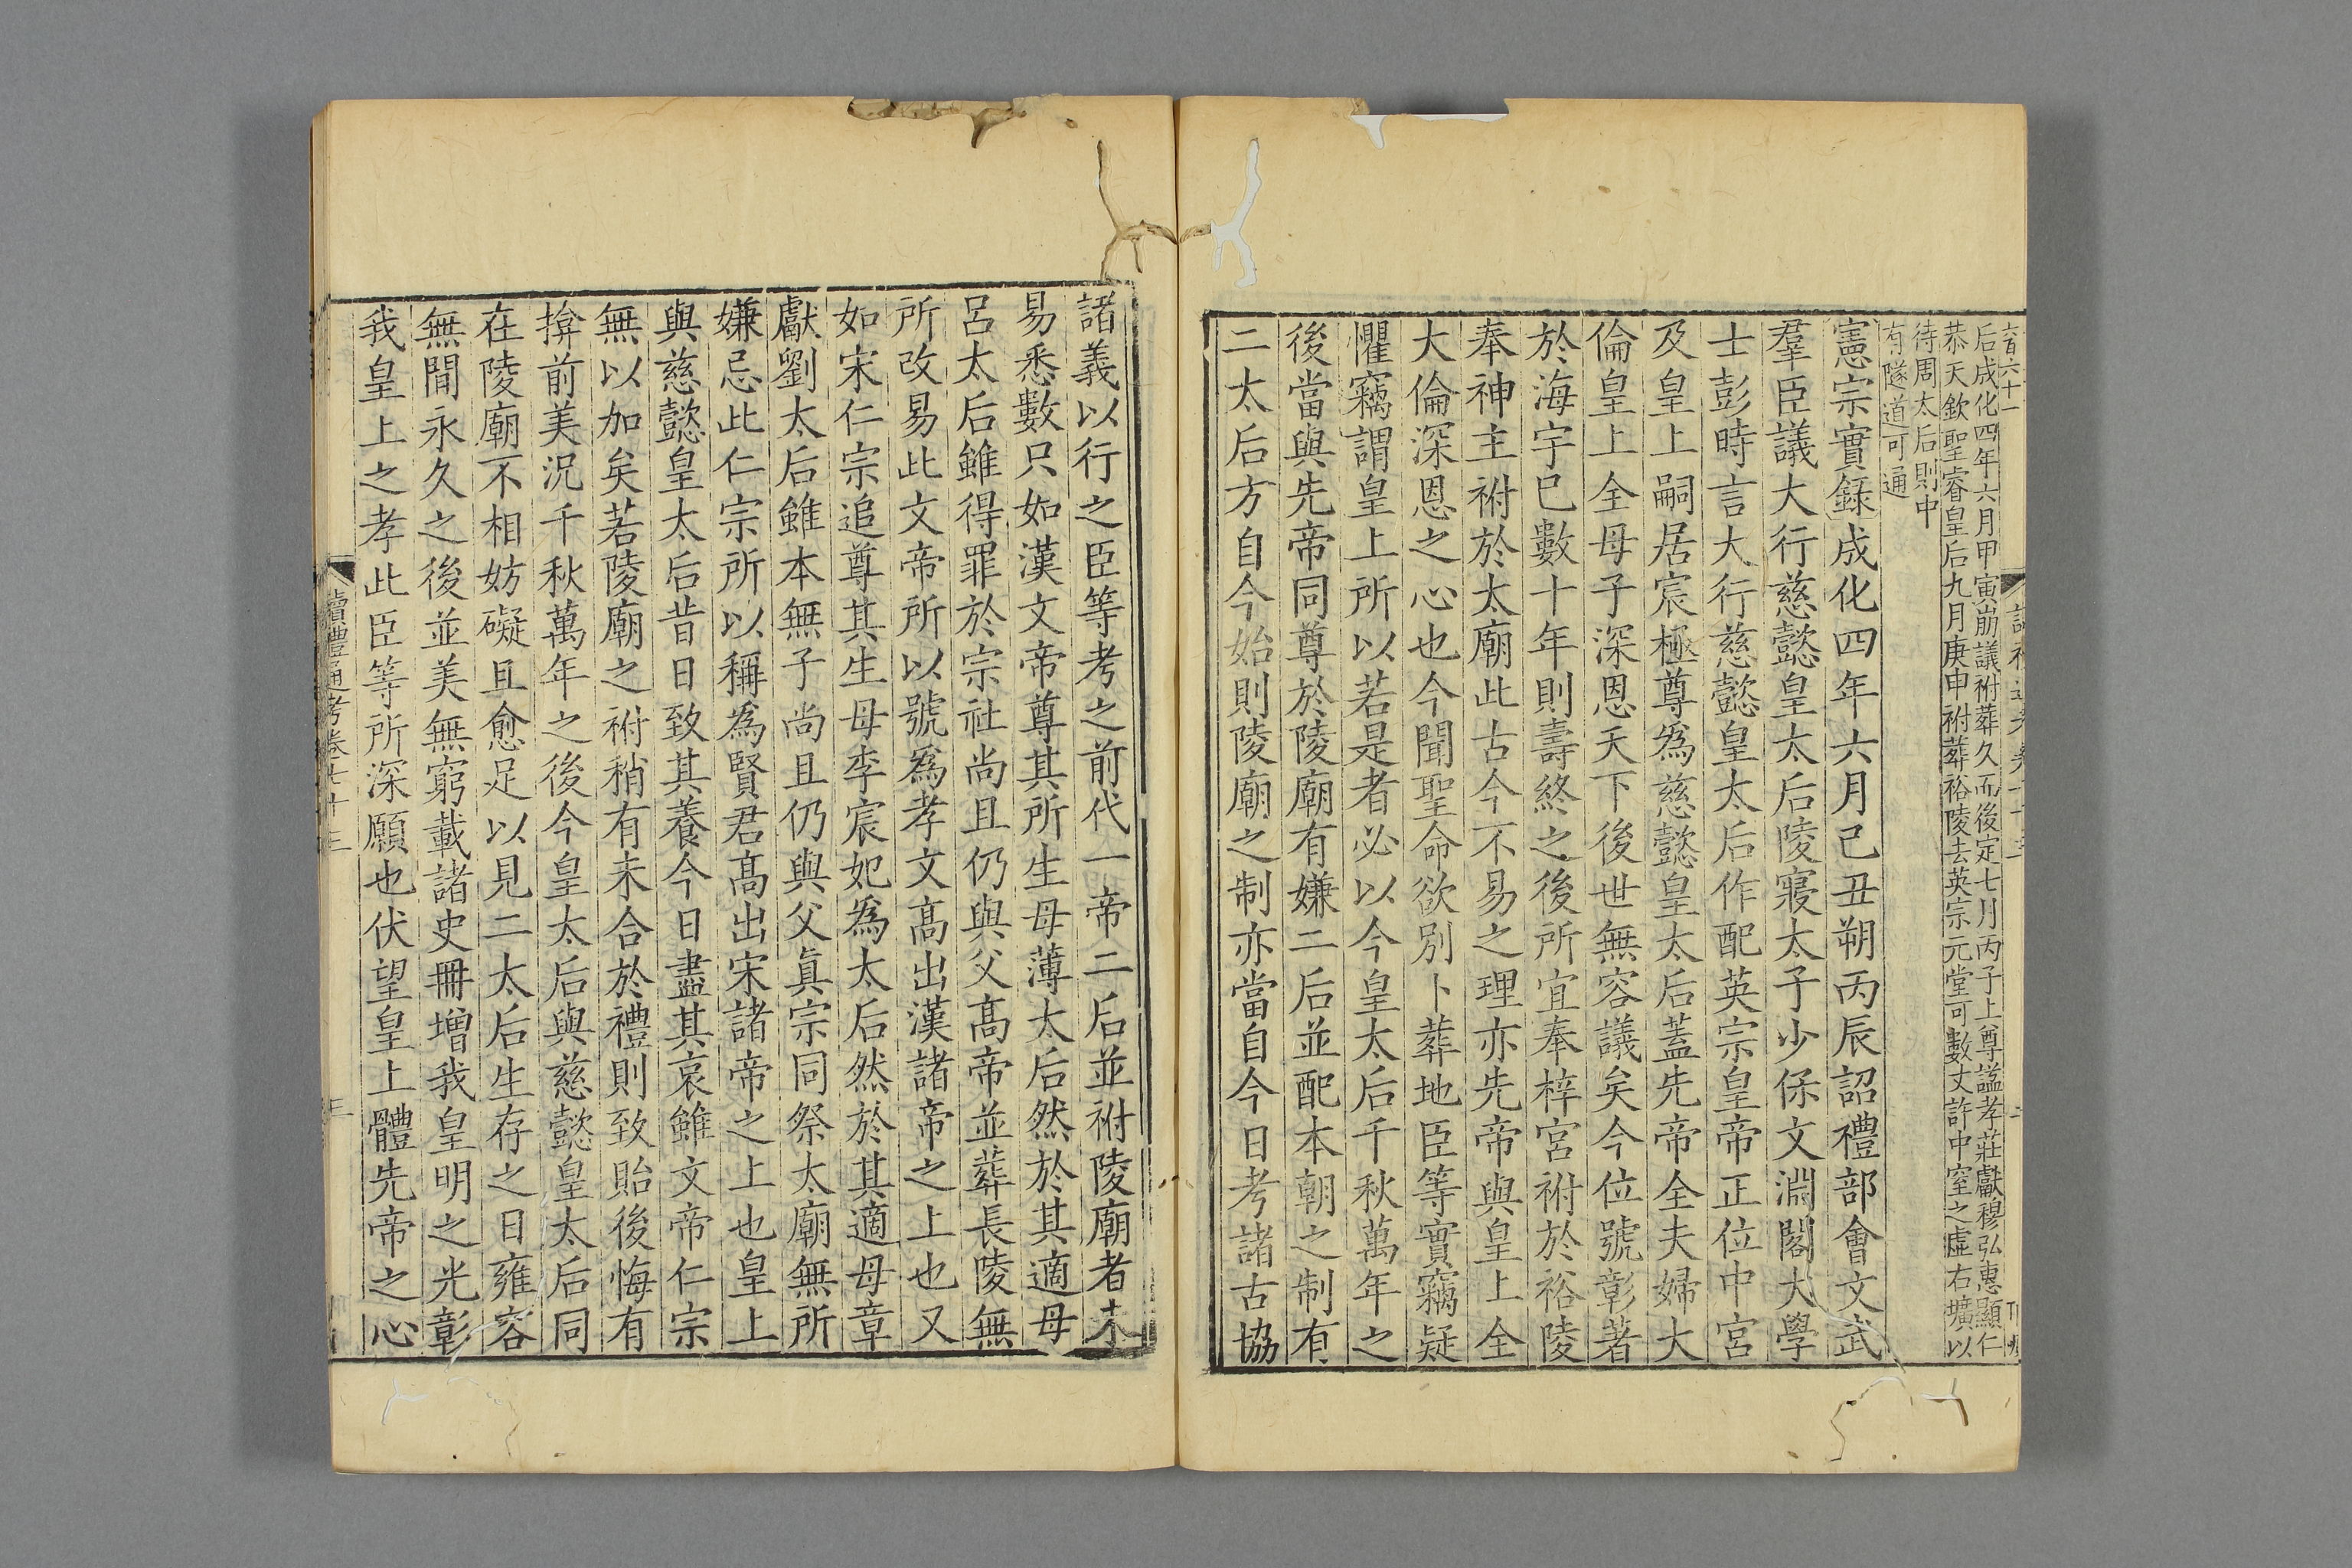 后成化四年六月甲寅崩議祔葬久而後定七月丙子上尊謚孝莊獻穆弘惠顯仁
恭天欽聖睿皇后九月庚申祔葬裕陵去英宗元堂可數丈許中窒之虛右壙以
待周太后則中
有隧道可通
憲宗實錄成化四年六月己丑朔丙辰詔禮部會文武
羣臣議大行慈懿皇太后陵寢太子少保文淵閣大學
士彭時言大行慈懿皇太后作配英宗皇帝正位中宮
及皇上嗣居宸極尊爲慈懿皇太后蓋先帝全夫婦大
倫皇上全母子深恩天下後世無容議矣今位號彰著
於海宇已數十年則壽終之後所宜奉梓宮祔於裕陵
奉神主祔於太廟此古今不易之理亦先帝與皇上全
大倫深恩之心也今聞聖命欲別卜葬地臣等實竊疑
懼竊謂皇上所以若是者必以今皇太后千秋萬年之
後當與先帝同尊於陵廟有嫌二后並配本朝之制有
二太后方自今始則陵廟之制亦當自今日考諸古協
諸義以行之臣等考之前代一帝二后並祔陵廟者未
易悉數只如漢文帝尊其所生母薄太后然於其適母
呂太后雖得罪於宗社尚且仍與父高帝並葬長陵無
所改易此文帝所以號爲孝文高出漢諸帝之上也又
如宋仁宗追尊其生母李宸妃爲太后然於其適母章
獻劉太后雖本無子尚且仍與父眞宗同祭太廟無所
嫌忌此仁宗所以稱爲賢君高出宋諸帝之上也皇上
與慈懿皇太后昔日致其養今日盡其哀雖文帝仁宗
無以加矣若陵廟之祔稍有未合於禮則致貽後悔有
揜前美況千秋萬年之後今皇太后與慈懿皇太后同
在陵廟不相妨礙且愈足以見二太后生存之日雍容
無閒永久之後並美無窮載諸史冊增我皇明之光彰
我皇上之孝此臣等所深願也伏望皇上體先帝之心
讀禮通考卷七十三
三